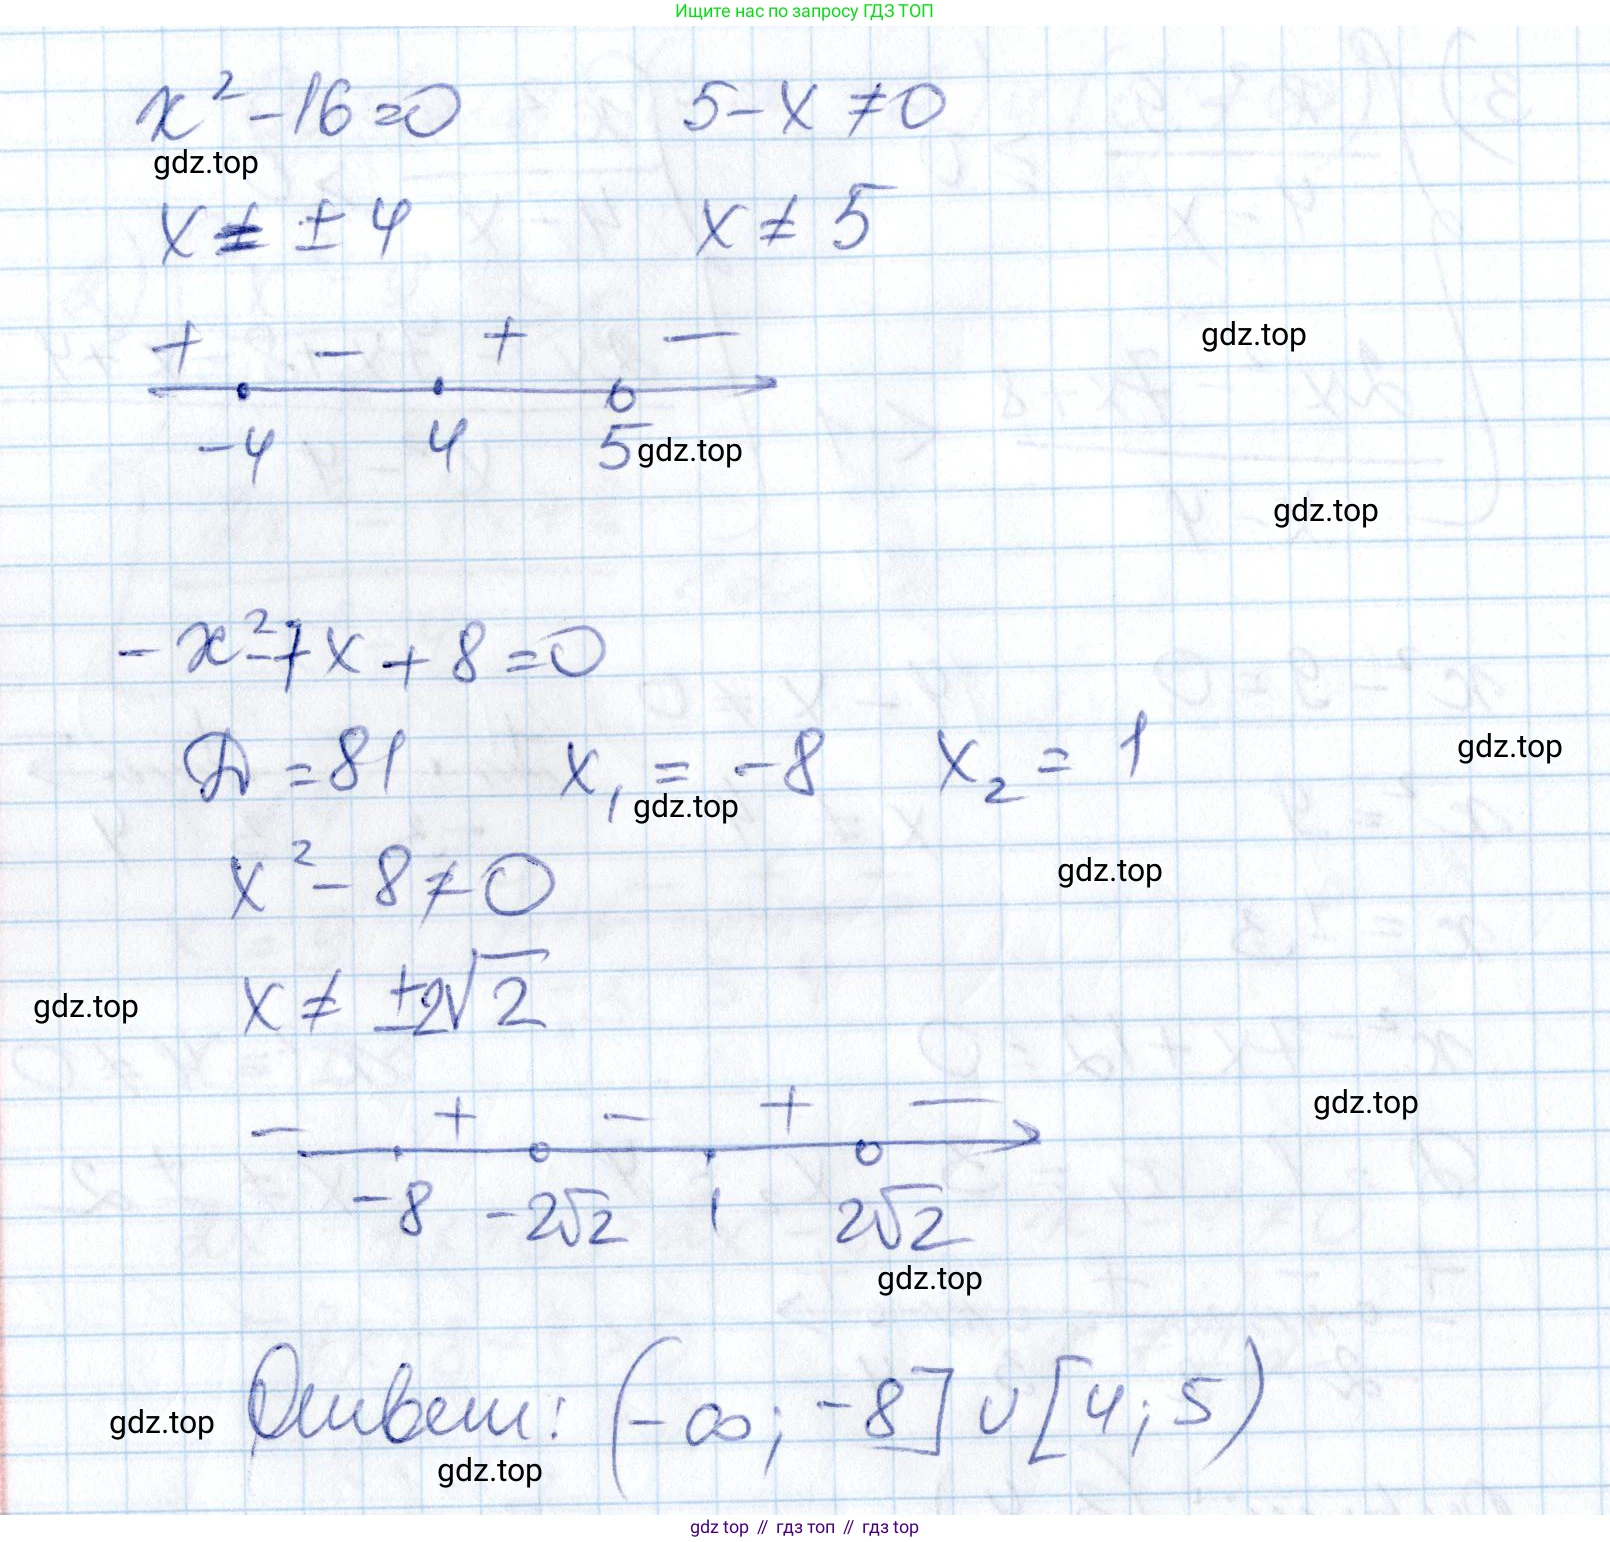 Ищите нас по запросу ГДЗ ТОП
x² - 16 = 0 5 - x ≠ 0
gdz.top
x = ± 4 x ≠ 5
+ - + -
gdz.top
-4 4 5 gdz.top
gdz.top
- x² - 7x + 8 = 0
D = 81 x₁ = -8 x₂ = 1
gdz.top
gdz.top
x² - 8 ≠ 0
gdz.top
x ≠ ±2√2
gdz.top
- + - + -
gdz.top
-8 -2√2 1 2√2
gdz.top
Ответ: (-∞; -8] ∪ [4; 5)
gdz.top
gdz.top
gdz top // гдз топ // гдз top